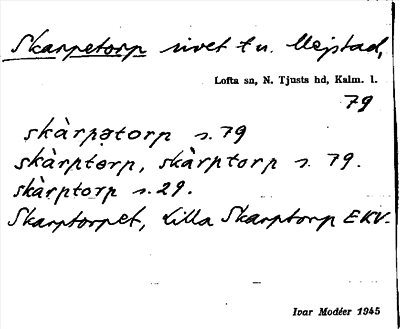 Skarpetorp rivet t u. Mejstad,
Lofta sn, N. Tjusts hd, Kalm. l.
79
skàrpətorp s. 79
skàrptərp, skàrptorp s. 79.
skàrptorp s. 29.
Skarptorpet, Lilla Skarptorp EKV.
Ivar Modéer 1945